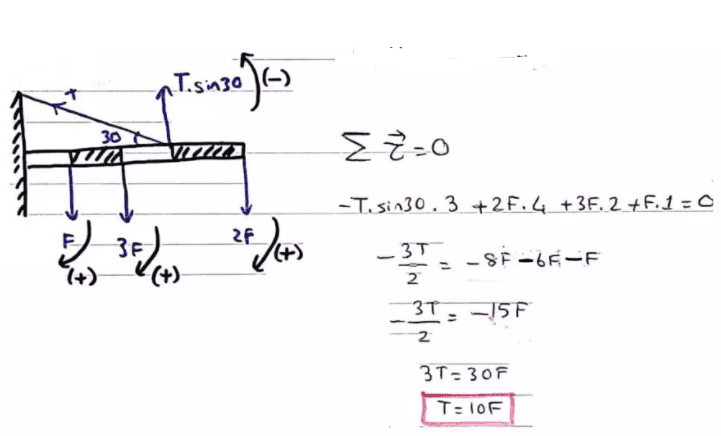 T.sin30 (-)
T
30
F 3F 2F
(+) (+) (+)
Σ τ⃗ = 0
-T.sin30.3 +2F.4 +3F.2 +F.1 = 0
-3T/2 = -8F -6F -F
-3T/2 = -15F
3T = 30F
T = 10F